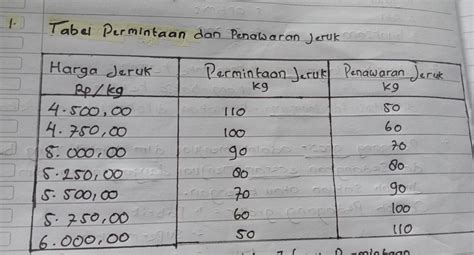 1. Tabel Permintaan dan Penawaran Jeruk
Harga Jeruk Rp/kg Permintaan Jeruk kg Penawaran Jeruk kg
4.500,00 110 50
4.750,00 100 60
5.000,00 90 70
5.250,00 80 80
5.500,00 70 90
5.750,00 60 100
6.000,00 50 110